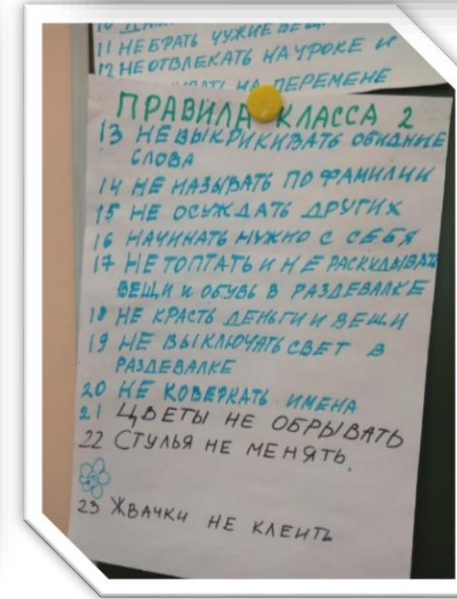 11 НЕ БРАТЬ ЧУЖИЕ
12 НЕ ОТВЛЕКАТЬ НА УРОКЕ И
НА ПЕРЕМЕНЕ
ПРАВИЛА КЛАССА 2
13 НЕ ВЫКРИКИВАТЬ ОБИДНЫЕ
СЛОВА
14 НЕ НАЗЫВАТЬ ПО ФАМИЛИИ
15 НЕ ОСУЖДАТЬ ДРУГИХ
16 НАЧИНАТЬ НУЖНО С СЕБЯ
17 НЕ ТОПТАТЬ И НЕ РАСКИДЫВАТЬ
ВЕЩИ И ОБУВЬ В РАЗДЕВАЛКЕ
18 НЕ КРАСТЬ ДЕНЬГИ И ВЕЩИ
19 НЕ ВЫКЛЮЧАТЬ СВЕТ В
РАЗДЕВАЛКЕ
20 НЕ КОВЕРКАТЬ ИМЕНА
21 ЦВЕТЫ НЕ ОБРЫВАТЬ
22 СТУЛЬЯ НЕ МЕНЯТЬ.
23 ЖВАЧКИ НЕ КЛЕИТЬ